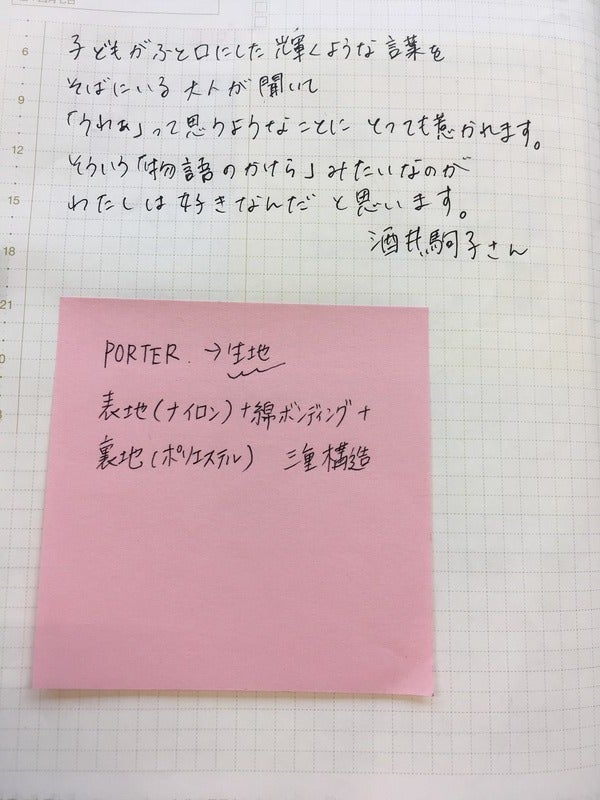 6
9
12
15
18
21
子どもがふと口にした輝くような言葉を
そばにいる大人が聞いて
「うわぁ」って思うようなことにとっても惹かれます。
そういう「物語のかけら」みたいなのが
わたしは好きなんだと思います。
酒井駒子さん
PORTER →生地
表地(ナイロン)+綿ボンディング+
裏地(ポリエステル) 三重構造